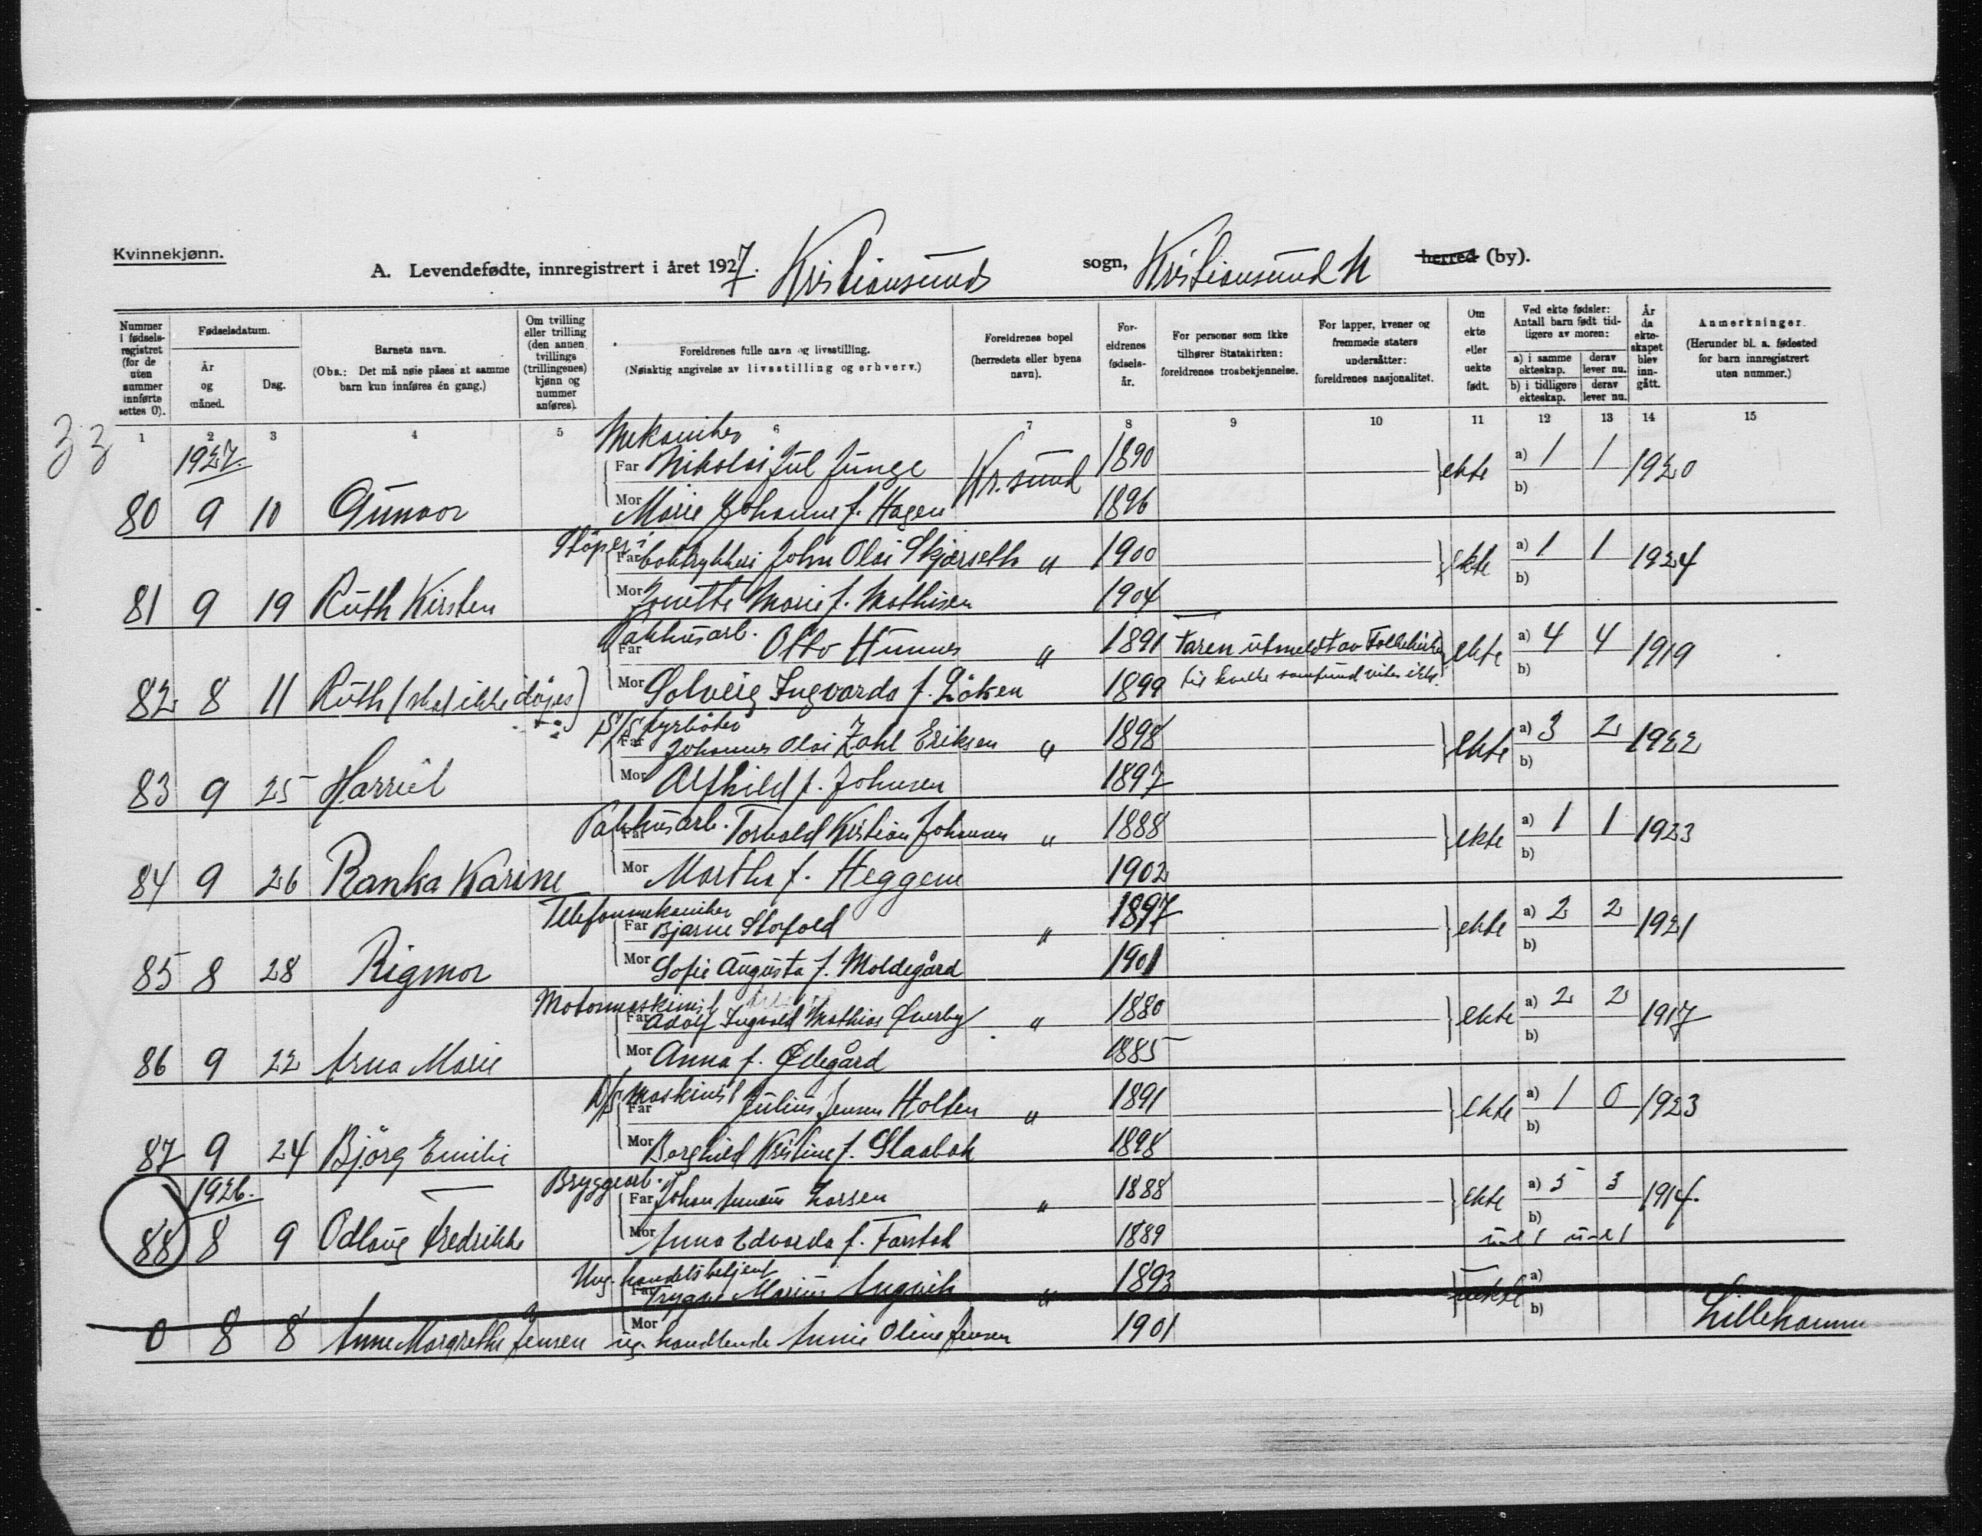 Kvinnekjønn.
A. Levendefødte, innregistrert i året 1927. Kristiansunds sogn, Kristiansund N herred (by).
Nummer i fødselsregistret (for de uten nummer innførte settes 0).
Fødselsdatum.
År og måned.
Dag.
Barnets navn.
(Obs.: Det må nøie påses at samme barn kun innføres én gang.)
Om tvilling eller trilling (den annen tvillings (trillingenes) kjønn og nummer anføres).
Foreldrenes fulle navn og livsstilling.
(Nøiaktig angivelse av livsstilling og erhverv.)
Foreldrenes bopel (herredets eller byens navn).
Foreldrenes fødselsår.
For personer som ikke tilhører Statskirken: foreldrenes trosbekjennelse.
For lapper, kvener og fremmede staters undersåtter: foreldrenes nasjonalitet.
Om ekte eller uekte født.
Ved ekte fødsler: Antall barn født tidligere av moren:
a) i samme ekteskap. derav lever nu.
b) i tidligere ekteskap. derav lever nu.
År da ekteskapet blev inngått.
Anmerkninger.
(Herunder bl. a. fødested for barn innregistrert uten nummer.)
1 2 3 4 5 6 7 8 9 10 11 12 13 14 15
33
1927.
Mekaniker
Far Nikolai Jul Junge Kr.sund 1890 ekte a) 1 1 1920
b)
80 9 10 Gunvor Mor Marie Johanne f. Hagen 1896
Støper i
Far boktrykkeri John Olai Skjærseth " 1900 ekte a) 1 1 1924
b)
81 9 19 Ruth Kirsten Mor Jonette Marie f. Mathisen 1904
Pakhusarb.
Far Otto Hunnes " 1891 Faren utmeldt av Folkekirken ekte a) 4 4 1919
b)
82 8 11 Ruth (skal ikke døpes) Mor Solveig Ingvarda f. Löken 1899 til hvilke samfund vites ikke.
D/S fyrbøter
Far Johannes Olai Zahl Eriksen " 1898 ekte a) 3 2 1922
b)
83 9 25 Harriet Mor Alfhild f. Johnsen 1897
Pakhusarb.
Far Torvald Kristian Johansen " 1888 ekte a) 1 1 1923
b)
84 9 26 Ranka Karine Mor Martha f. Heggem 1902
Telefonmekaniker
Far Bjarne Storfold " 1897 ekte a) 2 2 1921
b)
85 8 28 Rigmor Mor Sofie Augusta f. Moldegård 1901
Motormaskinist
Far Adolf Ingvald Mathias Øverby " 1880 ekte a) 2 2 1917
b)
86 9 22 Arna Marie Mor Anna f. Ødegård 1885
D/S Maskinist
Far Julius Jensen Holten " 1891 ekte a) 1 0 1923
b)
87 9 24 Björg Emilie Mor Borghild Kristine f. Slasbak 1898
1926.
Bryggearb.
Far Johan Larsen " 1888 ekte a) 5 3 1914.
b)
88 8 9 Odlaug Fredrikke Mor Anna Edvarda f. Farstad 1889 u-e 1 u-e 1
Ug. handelsbetjent
Far Trygve Marius Angvik " 1893 uekte a)
b)
0 8 8 Anne Margrethe Jensen Mor ug. handlende Annie Oline Jensen 1901 Lillehammer